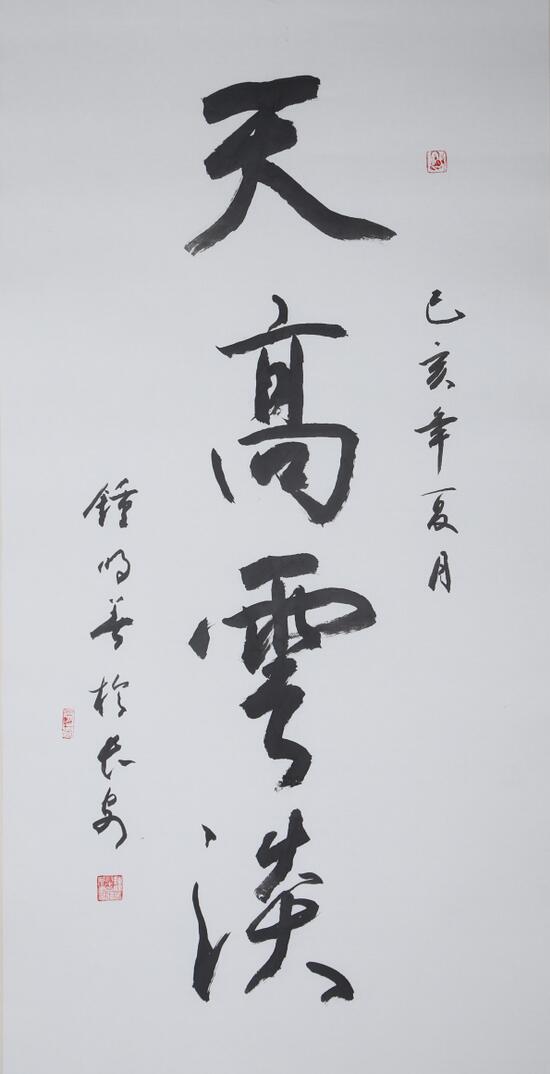 己亥年夏月
天高雲淡
鍾明善於長安